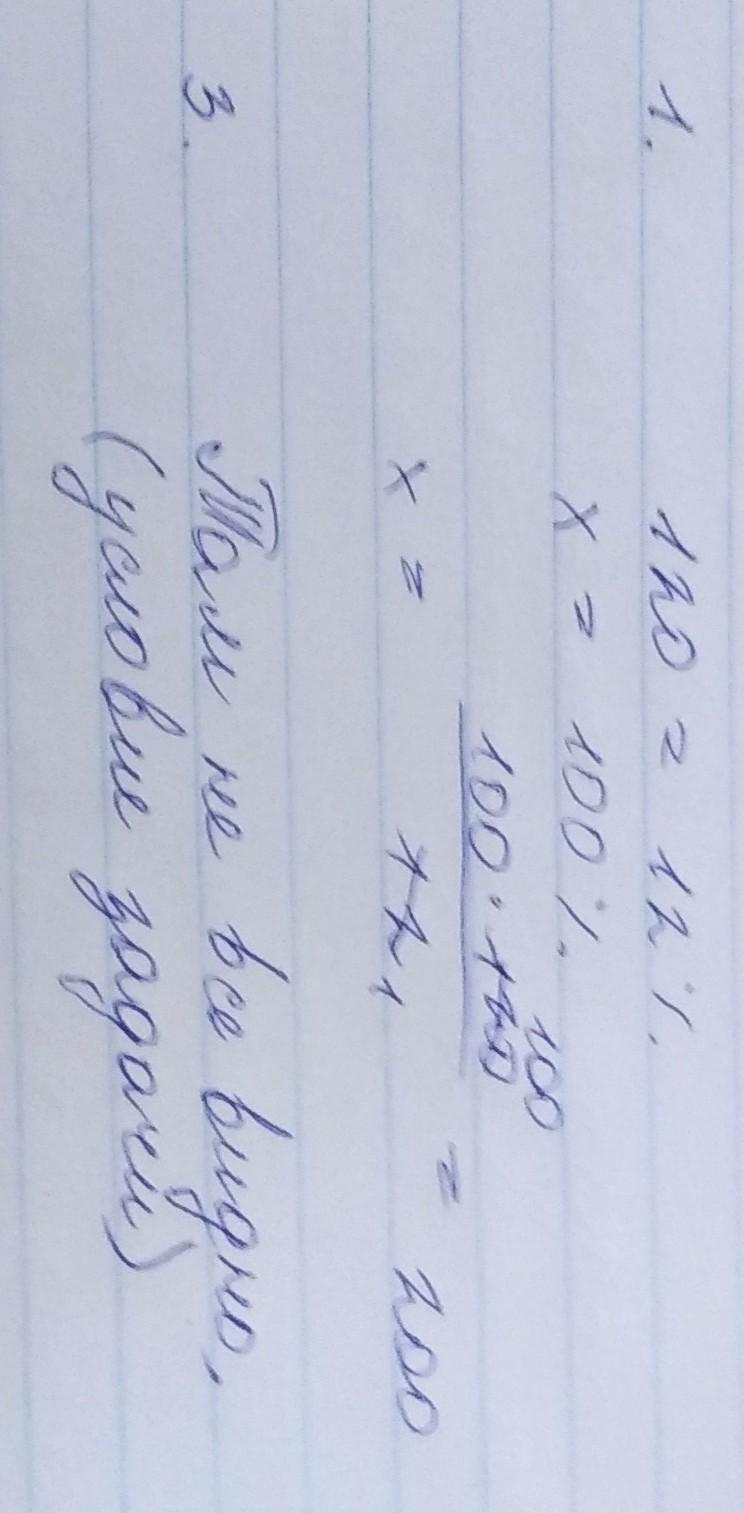 1. 120 = 12 %
x = 100 %
100
100 · 120
x = ――― = 200
12 1
3. Там не все видно,
(условие задачи)